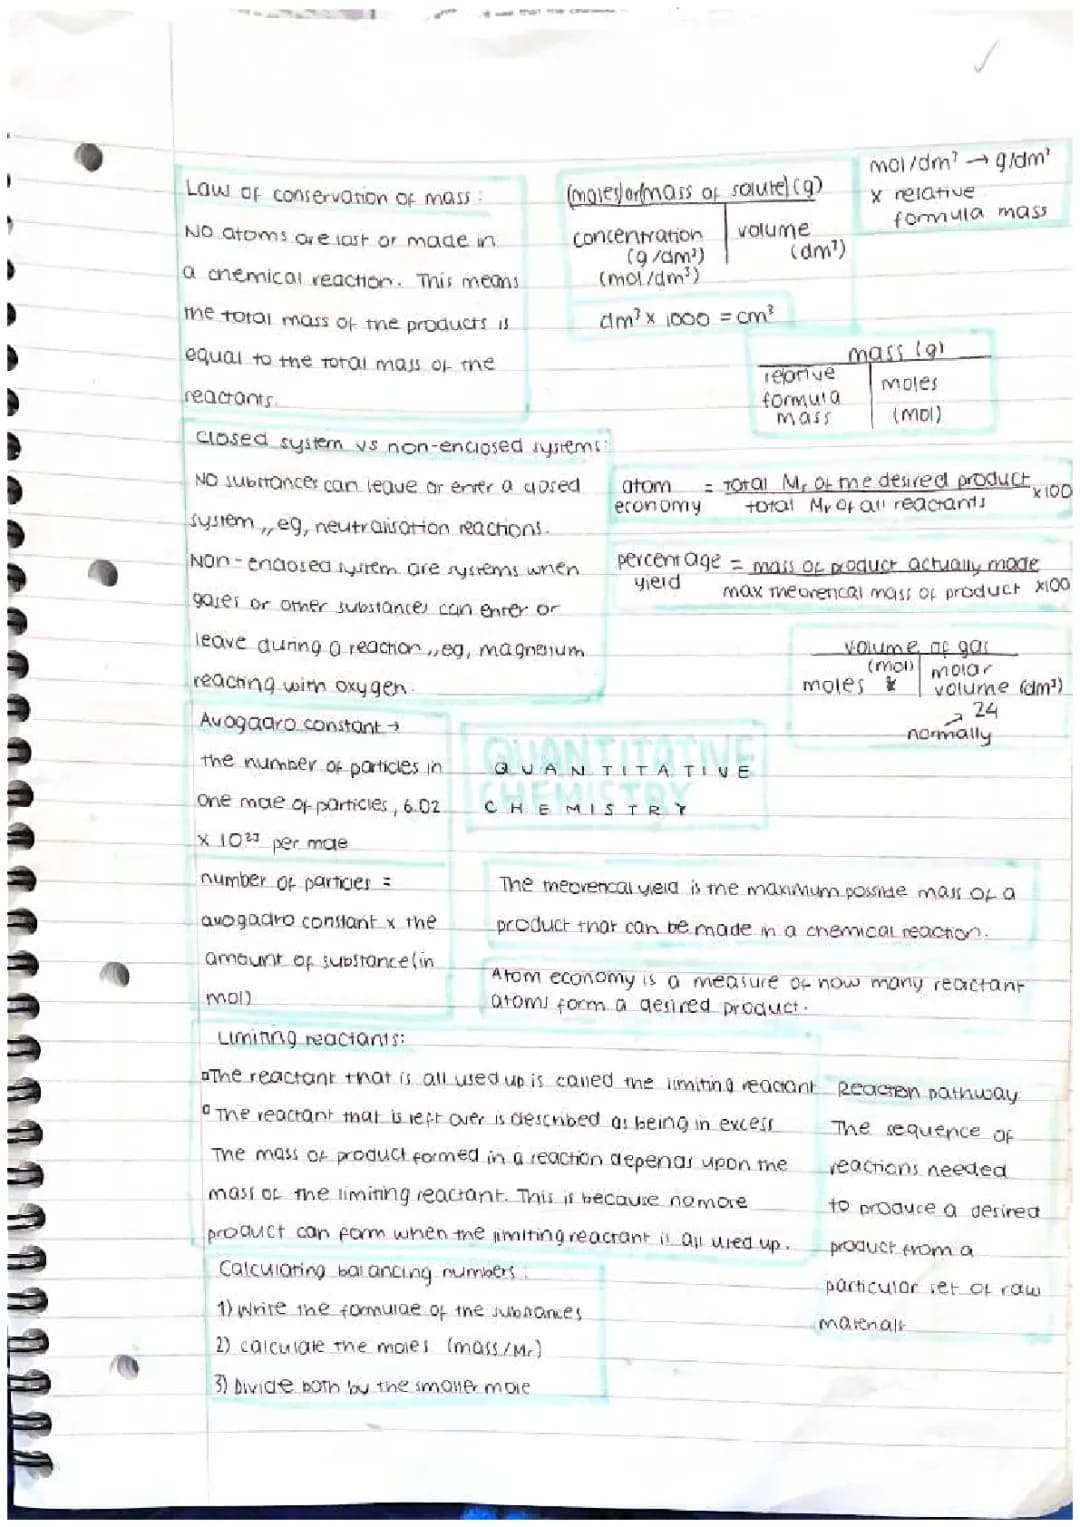 Law of conservation of mass:
No atoms are lost or made in
a chemical reaction. This means
the total mass of the products is
equal to the total mass of the
reactants.
(moles) or (mass of solute) (g)
concentration
(g/dm³)
(mol/dm³)
volume
(dm³)
mol/dm³ → g/dm³
x relative
formula mass
dm³ x 1000 = cm³
mass (g)
relative
formula
mass
moles
(mol)
Closed system vs non-enclosed systems:
No substances can leave or enter a closed
system,, eg, neutralisation reactions.
Non-enclosed system are systems when
gases or other substances can enter or
leave during a reaction,, eg, magnesium
reacting with oxygen.
atom economy = Total Mr of the desired product x100
total Mr of all reactants
percentage yield = mass of product actually made
max theoretical mass of product x100
volume of gas
(mol)
moles
molar
volume (dm³)
→ 24
normally
Avogadro constant →
the number of particles in
one mole of particles, 6.02
x 10²³ per mole
QUANTITATIVE
CHEMISTRY
QUANTITATIVE
CHEMISTRY
number of particles =
avogadro constant x the
amount of substance (in
mol)
The theoretical yield is the maximum possible mass of a
product that can be made in a chemical reaction.
Atom economy is a measure of how many reactant
atoms form a desired product.
Limiting reactants:
The reactant that is all used up is called the limiting reactant
The reactant that is left over is described as being in excess
The mass of product formed in a reaction depends upon the
mass of the limiting reactant. This is because no more
product can form when the limiting reactant is all used up.
Reaction pathway
The sequence of
reactions needed
to produce a desired
product from a
particular set of raw
materials
Calculating balancing numbers:
1) Write the formulae of the substances
2) calculate the moles (mass/Mr)
3) Divide both by the smaller mole